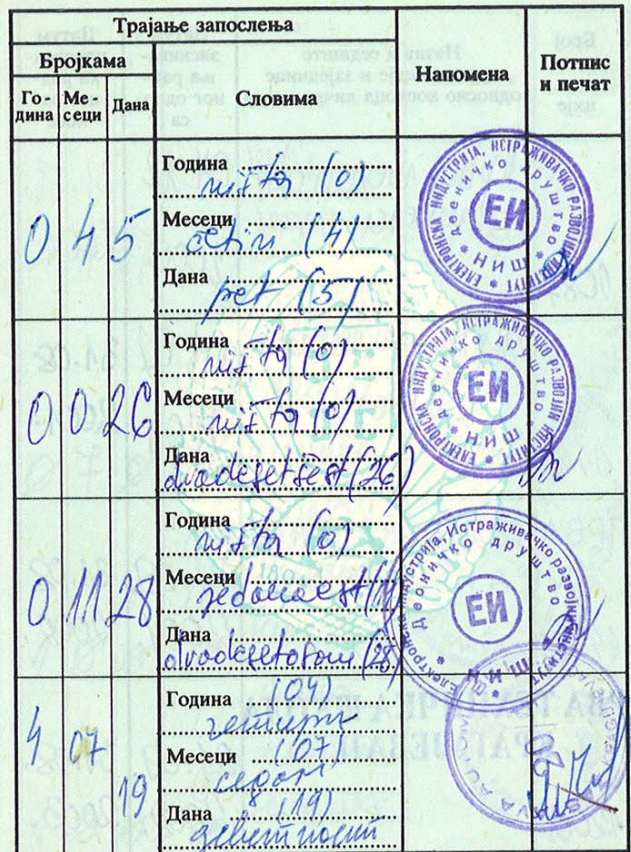 Трајање запослења
Бројкама
Словима
Напомена
Потпис и печат
Го- дина
Ме- сеци
Дана
0 4 5
Година ništa (0)
Месеци četiri (4)
Дана pet (5)
ЕЛЕКТРОНСКА ИНДУСТРИЈА, ИСТРАЖИВАЧКО РАЗВОЈНИ ИНСТИТУТ
деоничко друштво
ЕИ
НИШ
0 0 26
Година ništa (0)
Месеци ništa (0)
Дана dvadesetšest (26)
ЕЛЕКТРОНСКА ИНДУСТРИЈА, ИСТРАЖИВАЧКО РАЗВОЈНИ ИНСТИТУТ
деоничко друштво
ЕИ
НИШ
0 11 28
Година ništa (0)
Месеци jedanaest (11)
Дана dvadesetosam (28)
Електронска индустрија, Истраживачко развојни институт
Деоничко друштво
ЕИ
НИШ
4 07 19
Година (04)
четири
Месеци (07)
седам
Дана (19)
деветнаест